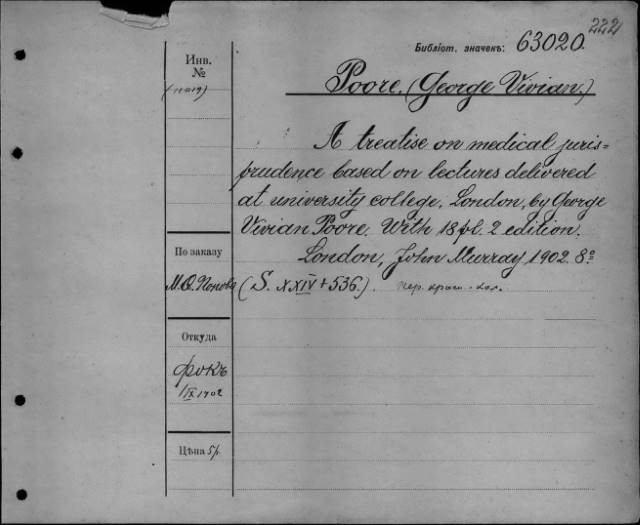 222
Библіот. значекъ: 63020.
Инв.
№
Poore, (George Vivian.)
A treatise on medical juris=
prudence based on lectures delivered
at university college, London, by George
Vivian Poore. With 18 pl. 2 edition.
London, John Murray 1902. 8º
По заказу
(S. XXIV + 536.)
Откуда
Фокъ
1/IX 1902
Цѣна 5 р.